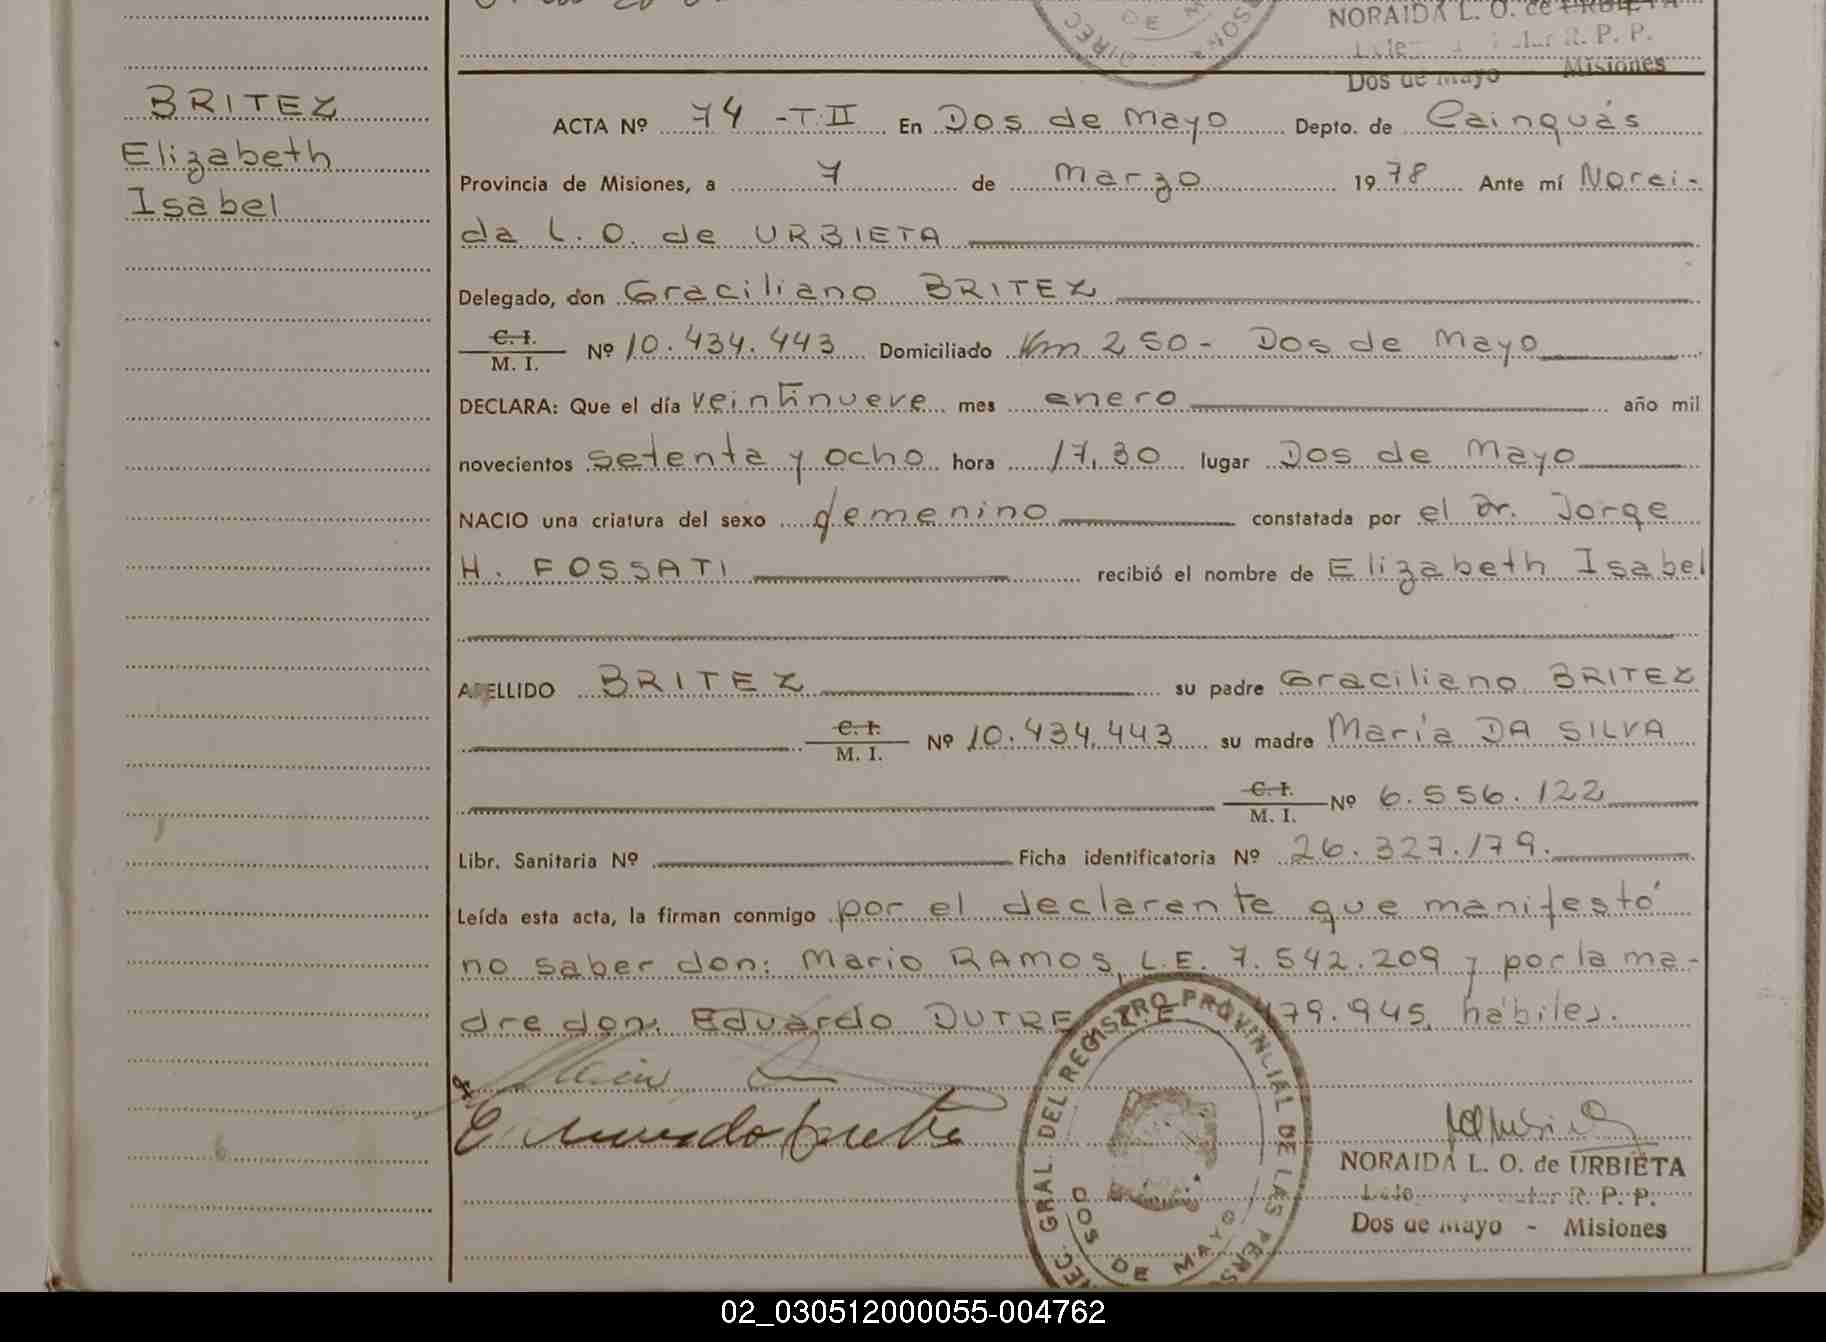 NORAIDA L. O. de URBIETA
R. P. P.
Dos de Mayo Misiones
BRITEZ
Elizabeth
Isabel
ACTA Nº 74 - T. II En Dos de Mayo Depto. de Cainguás
Provincia de Misiones, a 7 de marzo 1978 Ante mí Norai-
da L. O. de URBIETA
Delegado, don Graciliano BRITEZ
C. I.
M. I. Nº 10.434.443 Domiciliado Km 250 - Dos de Mayo
DECLARA: Que el día veintinueve mes enero año mil
novecientos setenta y ocho hora 17,30 lugar Dos de Mayo
NACIO una criatura del sexo femenino constatada por el Dr. Jorge
H. FOSSATI recibió el nombre de Elizabeth Isabel
APELLIDO BRITEZ su padre Graciliano BRITEZ
C. I.
M. I. Nº 10.434.443 su madre María DA SILVA
C. I.
M. I. Nº 6.556.122
Libr. Sanitaria Nº Ficha identificatoria Nº 26.327.179.
Leída esta acta, la firman conmigo por el declarante que manifestó
no saber don: Mario RAMOS, L.E. 7.542.209 y por la ma-
dre don: Eduardo DUTRE 479.945, hábiles.
DIREC. GRAL. DEL REGISTRO PROVINCIAL DE LAS PERS
DOS DE MAYO
NORAIDA L. O. de URBIETA
R. P. P.
Dos de Mayo - Misiones
02_030512000055-004762